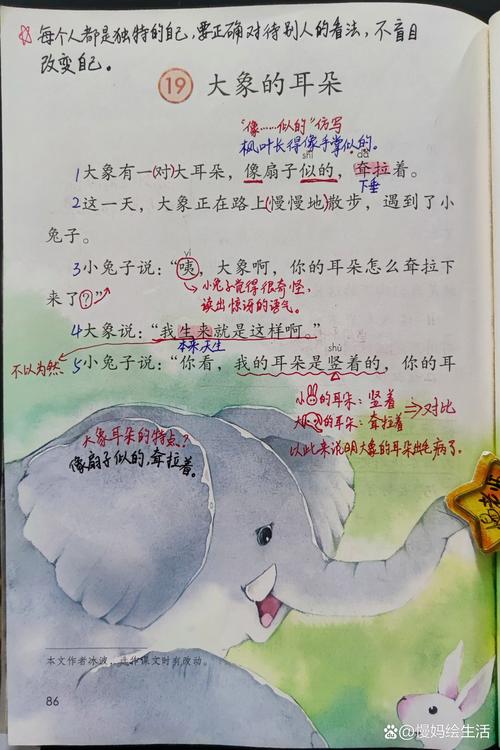 每个人都是独特的自己,要正确对待别人的看法,不盲目
改变自己。
19 大象的耳朵
“像……似的”仿写
枫叶长得像手掌似的。
shì dā
1大象有一(对)大耳朵,像扇子似的,耷拉着。
下垂
2这一天,大象正在路上(慢慢地)散步,遇到了小
兔子。
yí
3小兔子说:“咦,大象啊,你的耳朵怎么耷拉下
来了?”
小兔子觉得很奇怪,
读出惊讶的语气。
4大象说:“我生来就是这样啊。”
本来天生
不以为然
shù
5小兔子说:“你看,我的耳朵是竖着的,你的耳
小的耳朵:竖着
大的耳朵:耷拉着
⇒对比
以此来说明大象的耳朵出毛病了。
大象耳朵的特点?
像扇子似的,耷拉着。
本文作者冰波,选作课文时有改动。
86
慢妈绘生活